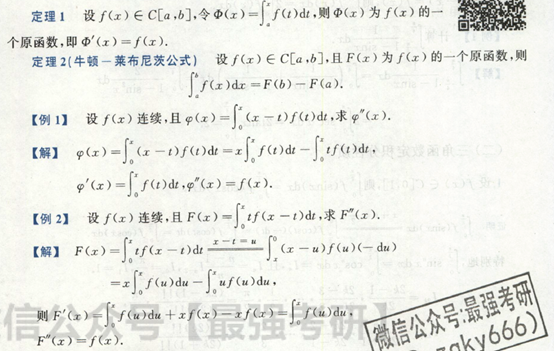 定理1 设 f(x)∈C[a,b],令Φ(x)=∫ₐˣf(t)dt,则Φ(x)为 f(x)的一
个原函数,即Φ′(x)=f(x).
定理2(牛顿—莱布尼茨公式) 设 f(x)∈C[a,b],且 F(x)为 f(x)的一个原函数,则
∫ₐᵇf(x)dx=F(b)-F(a).
【例1】 设 f(x)连续,且 φ(x)=∫₀ˣ(x-t)f(t)dt,求 φ″(x).
【解】 φ(x)=∫₀ˣ(x-t)f(t)dt=x∫₀ˣf(t)dt-∫₀ˣtf(t)dt,
φ′(x)=∫₀ˣf(t)dt,φ″(x)=f(x).
【例2】 设 f(x)连续,且 F(x)=∫₀ˣtf(x-t)dt,求 F″(x).
【解】 F(x)=∫₀ˣtf(x-t)dt x-t=u ∫ₓ⁰(x-u)f(u)(-du)
=x∫₀ˣf(u)du-∫₀ˣuf(u)du,
则 F′(x)=∫₀ˣf(u)du+xf(x)-xf(x)=∫₀ˣf(u)du,
F″(x)=f(x).
信公众号【最强考研
微信公众号:最强考研